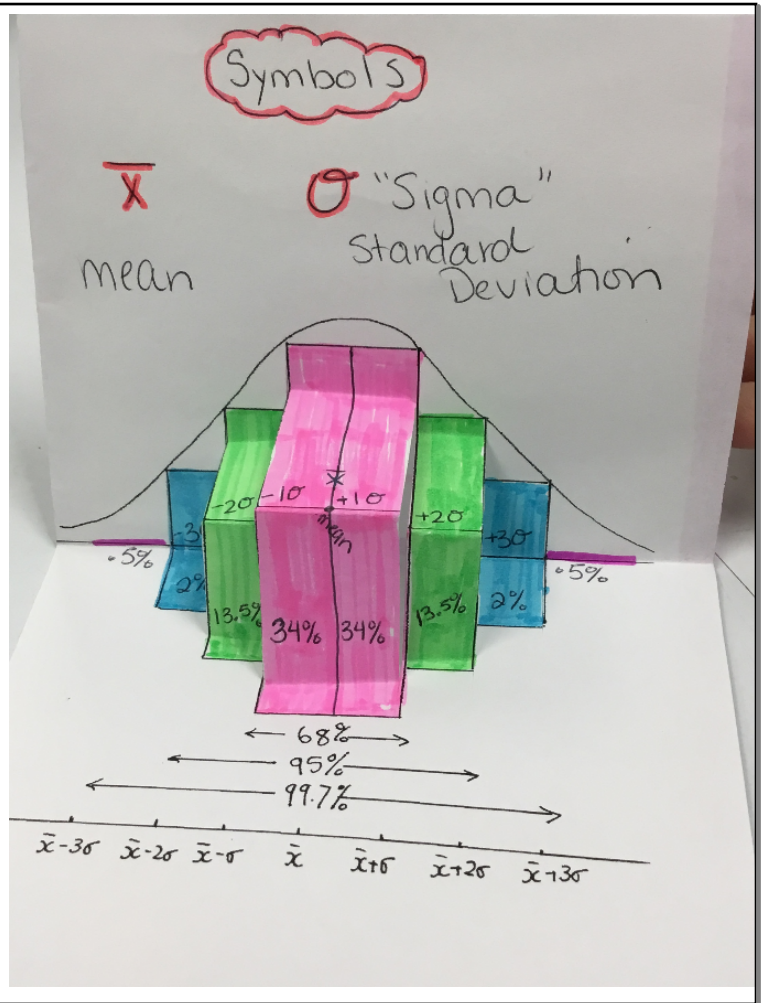 Symbols
x̄ σ "Sigma"
mean Standard
Deviation
x̄
-3 -2σ -1σ +1σ +2σ +3σ
mean
.5% 2% 13.5% 34% 34% 13.5% 2% .5%
68%
95%
99.7%
x̄-3σ x̄-2σ x̄-σ x̄ x̄+σ x̄+2σ x̄+3σ